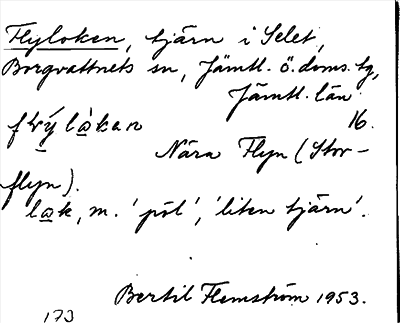 Flyloken, tjärn i Selet,
Borgvattnets sn, Jämtl. ö. doms. tg,
Jämtl. län.
16.
Nära Flyn (Stor-
flyn).
lak, m. 'pöl', 'liten tjärn'.
Bertil Flemström 1953.
173